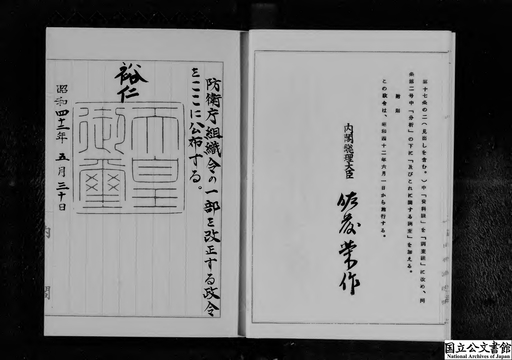 第十七条の二(見出しを含む。)中「資料課」を「調査課」に改め、同
条第二号中「分析」の下に「及びこれに関する調査」を加える。
附則
この政令は、昭和四十二年六月一日から施行する。
内閣総理大臣
佐藤栄作
防衛庁組織令の一部を改正する政令
をここに公布する。
裕仁
天皇御璽
昭和四十二年五月三十日
内閣
国立公文書館
National Archives of Japan